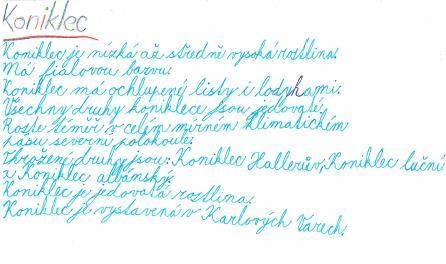 Koniklec
Koniklec je nízká až středně vysoká rostlina.
Má fialovou barvu.
Koniklec má ochlupené listy i lodyhami.
Všechny druhy koniklece jsou jedovaté.
Roste téměř v celém mírném klimatickém
pásu severní polokoule.
Ohrožené druhy jsou: Koniklec Hallerův, Koniklec luční
a Koniklec albánský.
Koniklec je jedovatá rostlina.
Koniklec je vystavená v Karlových Varech.